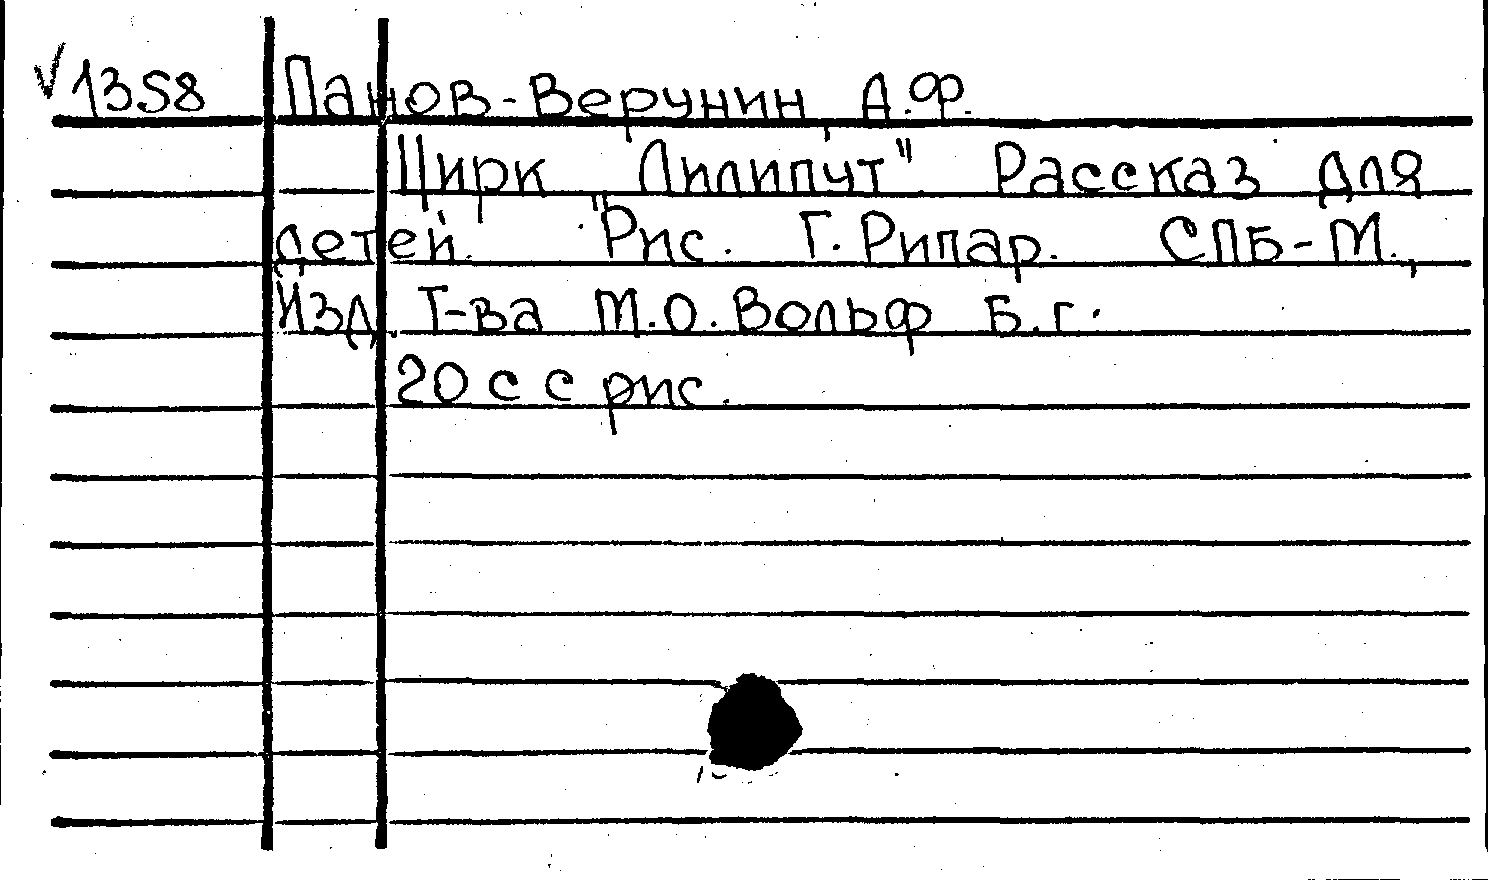 √1358 Панов-Верунин, А.Ф.
Цирк "Лилипут" Рассказ для
детей. Рис. Г. Рипар. СПБ-М.,
Изд. Т-ва М.О. Вольф Б.г.
20 с с рис.